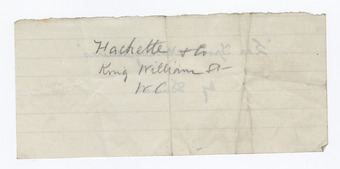 Hachette & Co
King William St
W.C.